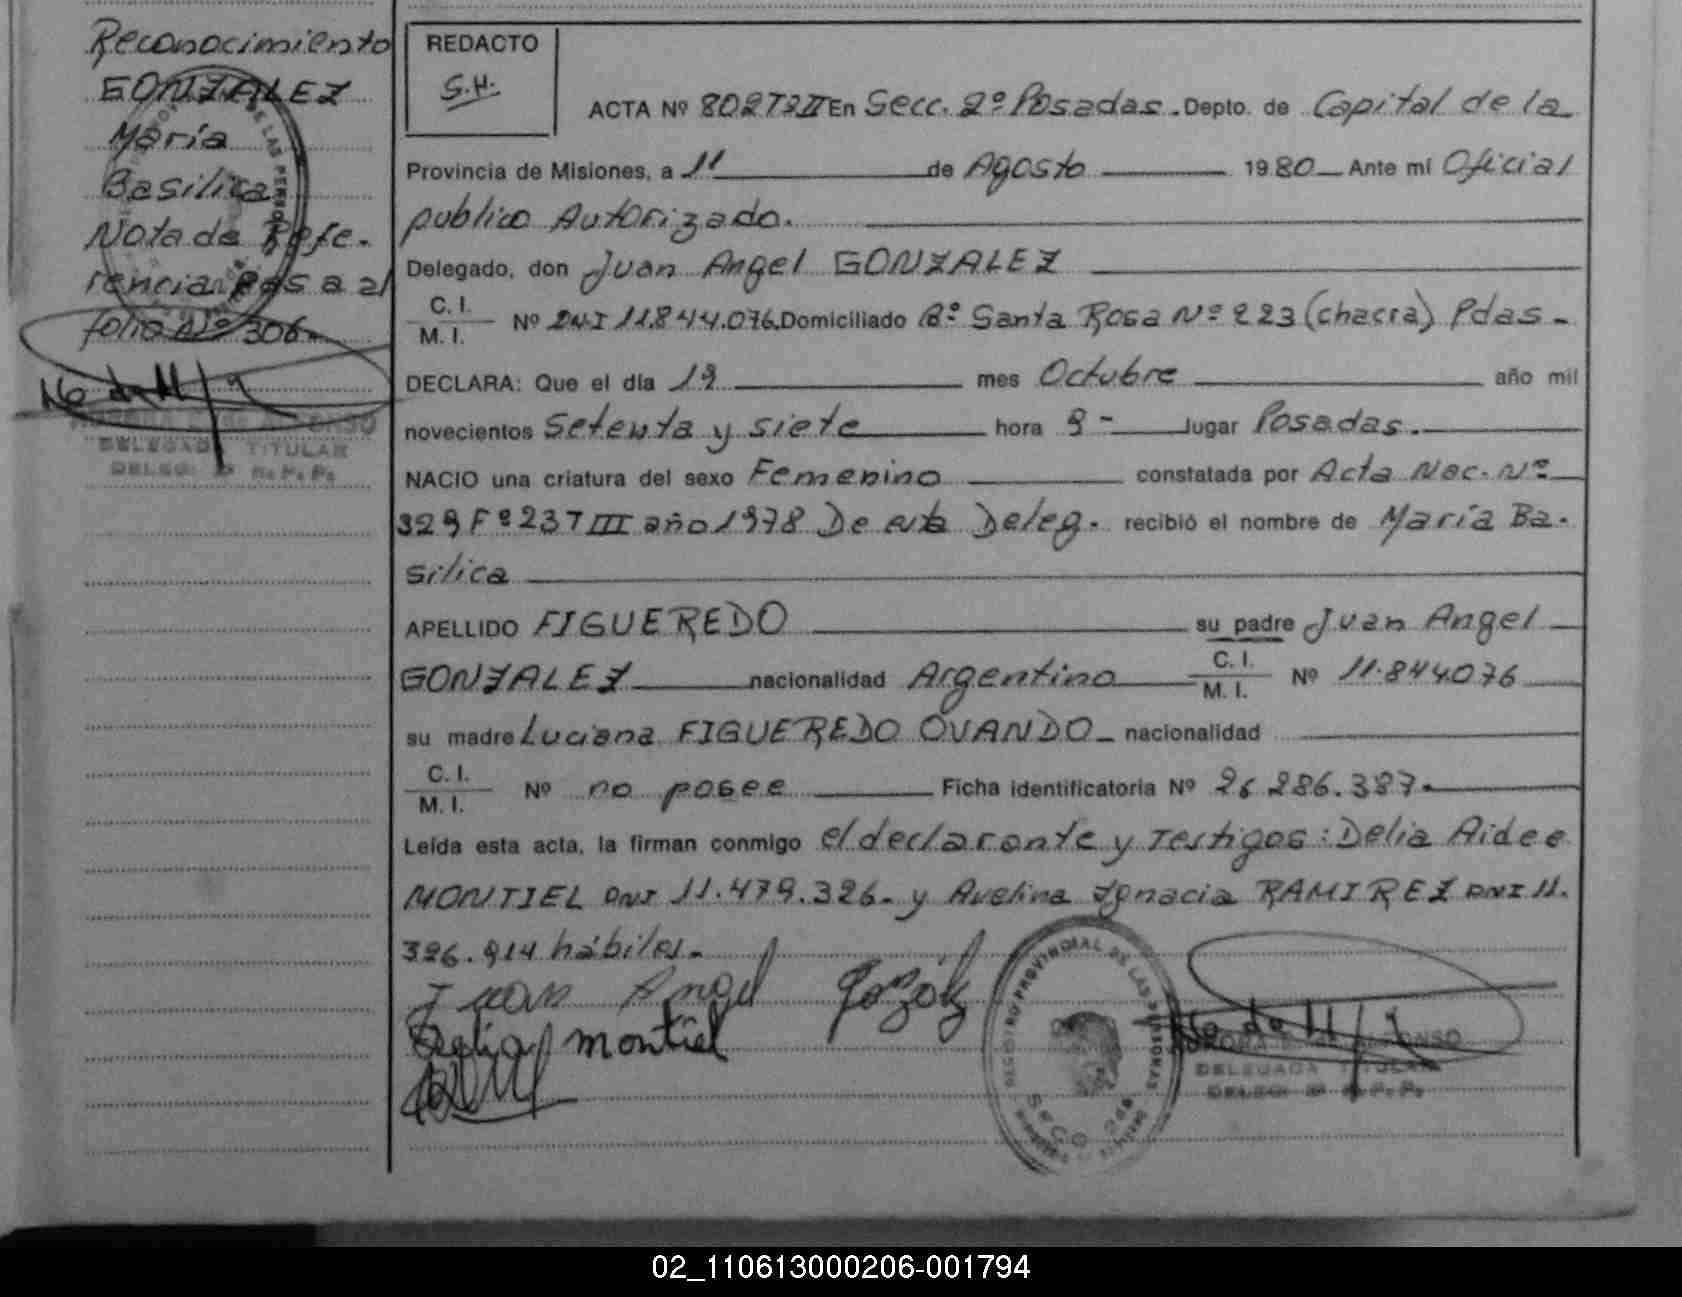 Reconocimiento
GONZALEZ
María
Basilica
Nota de Refe-
rencia pasa al
folio Nº 306-
DELEGADA TITULAR
REDACTO
S.H.
ACTA Nº 802 T2II En Secc. 2º Posadas. Depto. de Capital de la
Provincia de Misiones, a 11 de Agosto 1980 Ante mi Oficial
publico Autorizado.
Delegado, don Juan Angel GONZALEZ
C. I.
M. I. Nº DNI 11.844.076. Domiciliado Bº Santa Rosa Nº 223 (chacra) Pdas-
DECLARA: Que el día 19 mes Octubre año mil
novecientos setenta y siete hora 9- lugar Posadas.
NACIO una criatura del sexo Femenino constatada por Acta Nac. Nº
329 Fº 237 III año 1978 De esta Deleg. recibió el nombre de María Ba-
silica
APELLIDO FIGUEREDO su padre Juan Angel
GONZALEZ nacionalidad Argentino C. I.
M. I. Nº 11.844.076
su madre Luciana FIGUEREDO OVANDO nacionalidad
C. I.
M. I. Nº no posee Ficha identificatoria Nº 26.286.387.
Leída esta acta, la firman conmigo el declarante y testigos: Delia Aidee
MONTIEL DNI 11.479.326- y Avelina Ignacia RAMIREZ DNI 11.
396.914 hábiles.-
Juan Angel
Delia montiel
REGISTRO PROVINCIAL DE LAS PERSONAS
DELEGADA TITULAR
02_110613000206-001794